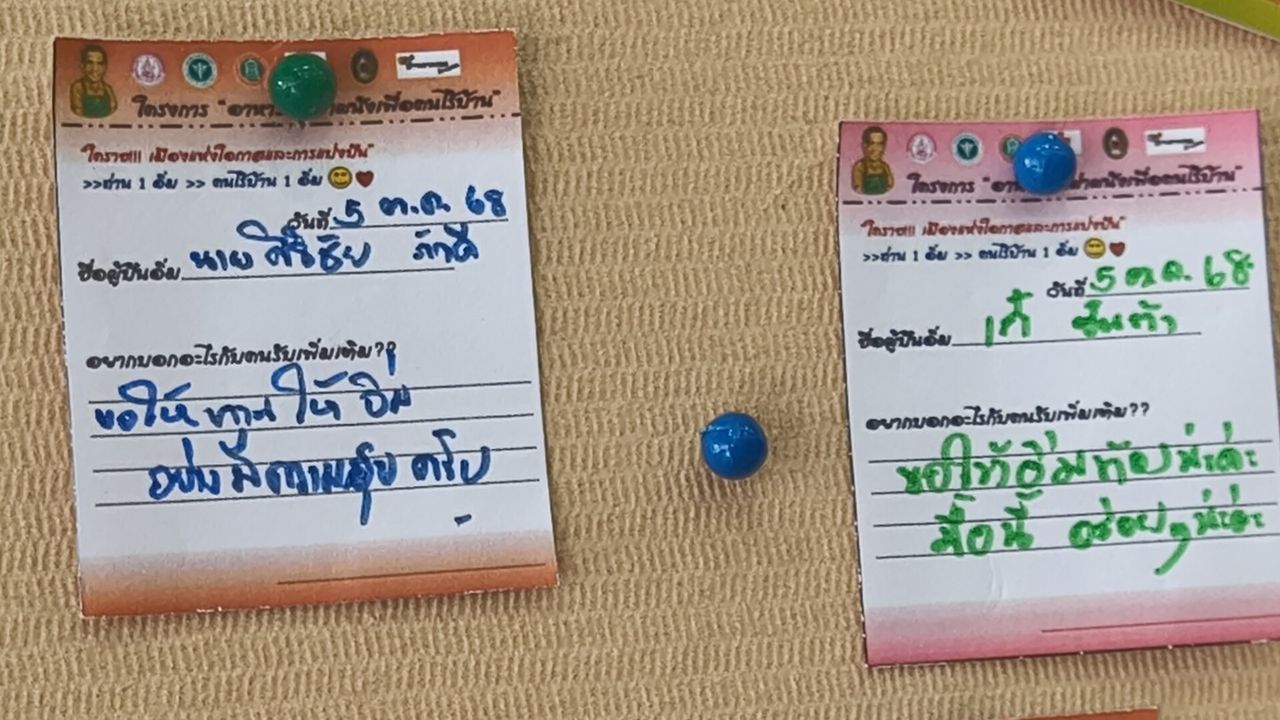 โครงการ "อาหา
ผนังเพื่อคนไร้บ้าน"
"โคราช!!! เมืองแห่งโอกาสและการแบ่งปัน"
>>ท่าน 1 อิ่ม >> คนไร้บ้าน 1 อิ่ม
วันที่ 5 ต.ค. 68
ชื่อผู้ปันอิ่ม นาย ชัย ภักดี
อยากบอกอะไรกับคนรับเพิ่มเติม??
ขอให้ทานให้อิ่ม
อย่างมีความสุข ครับ
โครงการ "อา
ผนังเพื่อคนไร้บ้าน"
"โคราช!!! เมืองแห่งโอกาสและการแบ่งปัน"
>>ท่าน 1 อิ่ม >> คนไร้บ้าน 1 อิ่ม
วันที่ 5 ต.ค. 68
ชื่อผู้ปันอิ่ม เก๋
อยากบอกอะไรกับคนรับเพิ่มเติม??
ขอให้อิ่มท้องน่ะค่ะ
มื้อนี้ อร่อยๆน่ะค่ะ